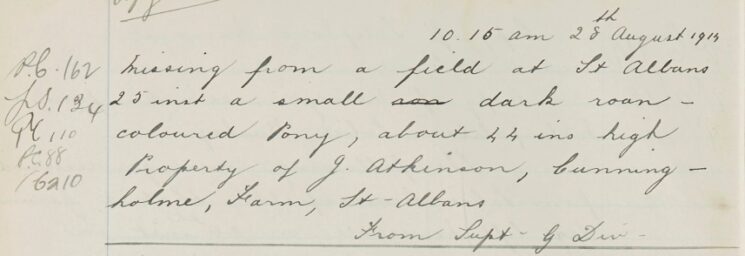 10.15 am 28th August 1914
Missing from a field at St Albans
25 inst a small dark roan -
coloured Pony, about 44 ins high
Property of J. Atkinson, Cunning -
holme, Farm, St - Albans
From Supt - G Div -
P.C. 162
P.S. 134
PC 110
P.C. 88